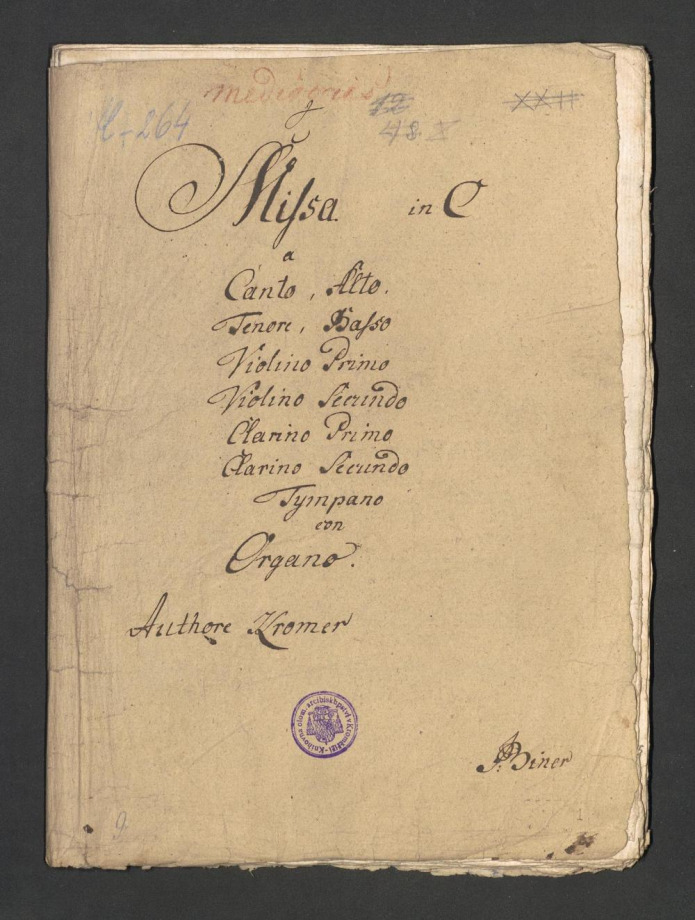 mediocris
H-264 12 XXII
48. X
Missa in C
a
Canto, Alto.
Tenore, Basso
Violino Primo
Violino Secundo
Clarino Primo
Clarino Secundo
Tympano
con
Organo.
Authore Kromer
Knihovna olom. arcibiskupství v Kroměříži
J. Biner
9.
1